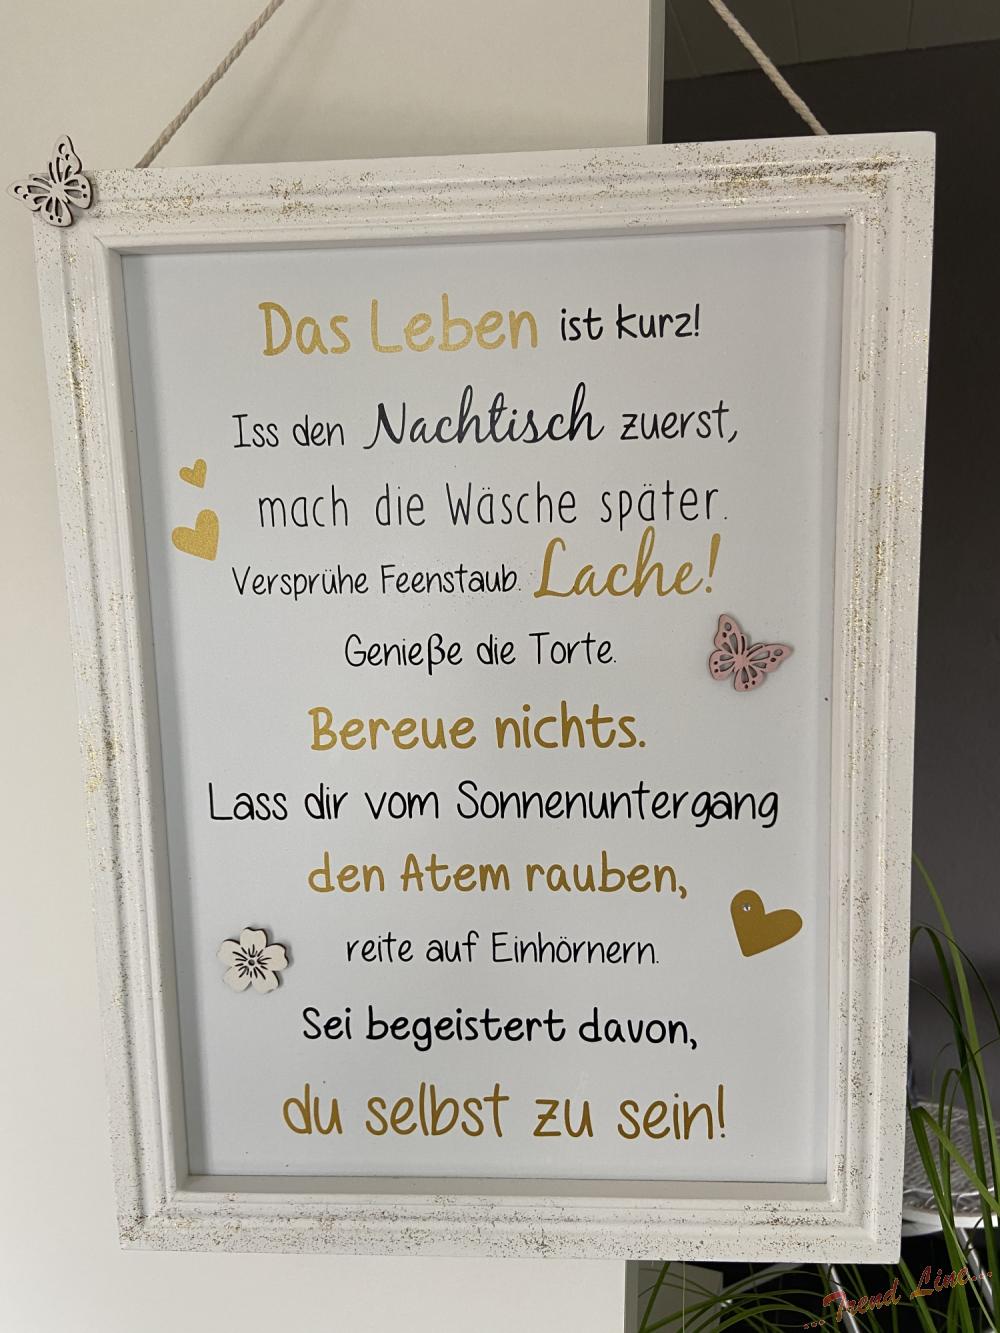 Das Leben ist kurz!
Iss den Nachtisch zuerst,
mach die Wäsche später.
Versprühe Feenstaub. Lache!
Genieße die Torte.
Bereue nichts.
Lass dir vom Sonnenuntergang
den Atem rauben,
reite auf Einhörnern.
Sei begeistert davon,
du selbst zu sein!
...Trend Line...